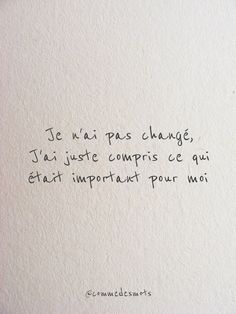 Je n'ai pas changé,
J'ai juste compris ce qui
était important pour moi
@commedesmots